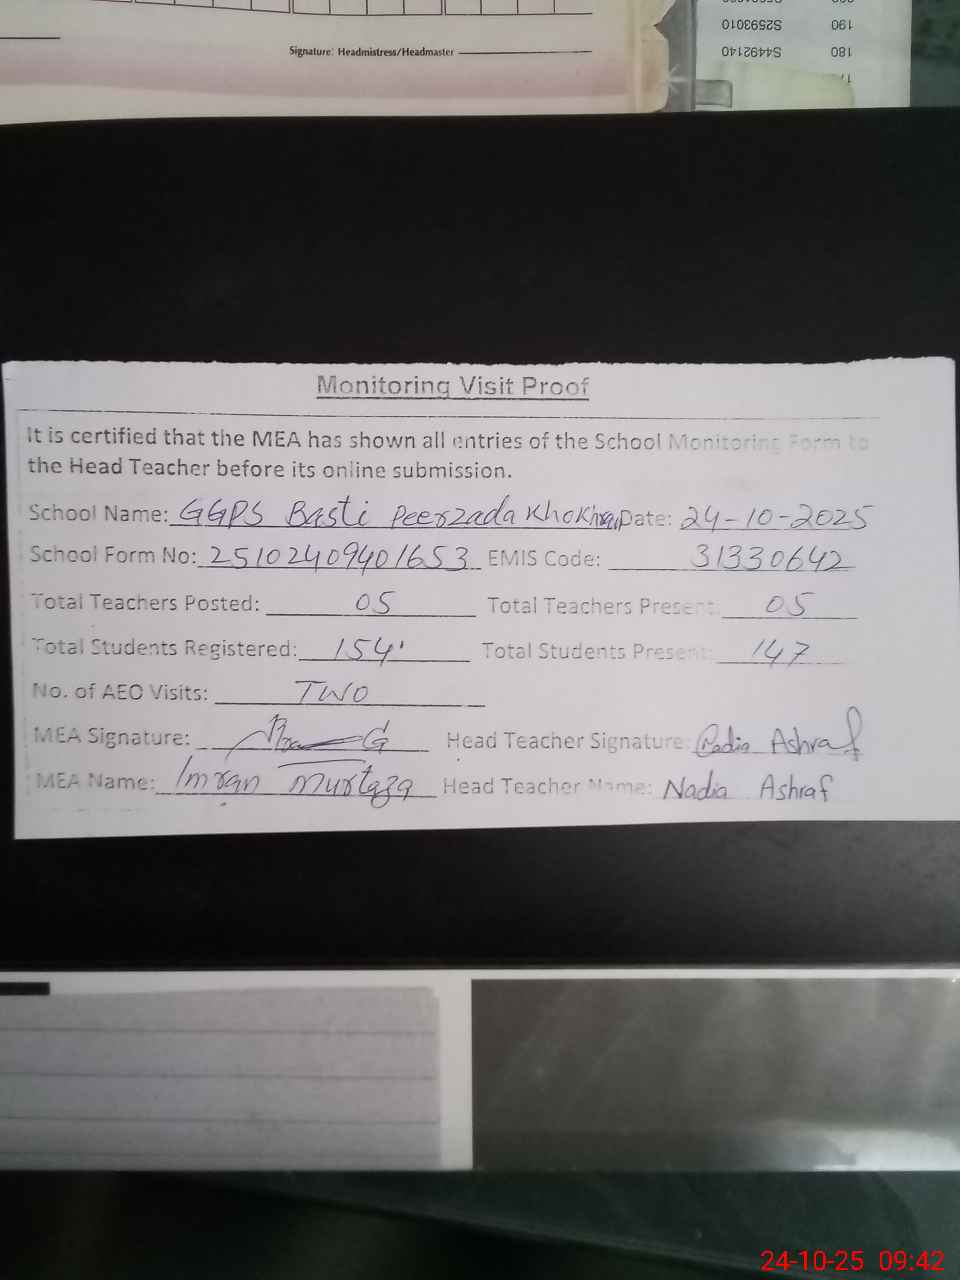 Signature: Headmistress/Headmaster
S2593010 190
S4492140 180
Monitoring Visit Proof
It is certified that the MEA has shown all entries of the School Monitoring Form to
the Head Teacher before its online submission.
School Name: GGPS Basti Peerzada Khokhran Date: 24-10-2025
School Form No: 25102409401653 EMIS Code: 31330642
Total Teachers Posted: 05 Total Teachers Present: 05
Total Students Registered: 154 Total Students Present: 147
No. of AEO Visits: TWO
MEA Signature: Head Teacher Signature: Nadia Ashraf
MEA Name: Imran Murtaza Head Teacher Name: Nadia Ashraf
24-10-25 09:42